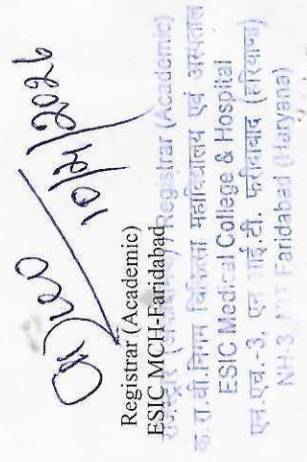 10/2/2026
Registrar (Academic)
ESIC MCH-Faridabad
रजिस्ट्रार (अकादमिक) / Registrar (Academic)
क.रा.बी.निगम चिकित्सा महाविद्यालय एवं अस्पताल
ESIC Medical College & Hospital
एन.एच.-3, एन.आई.टी. फरीदाबाद (हरियाणा)
NH-3, NIT Faridabad (Haryana)